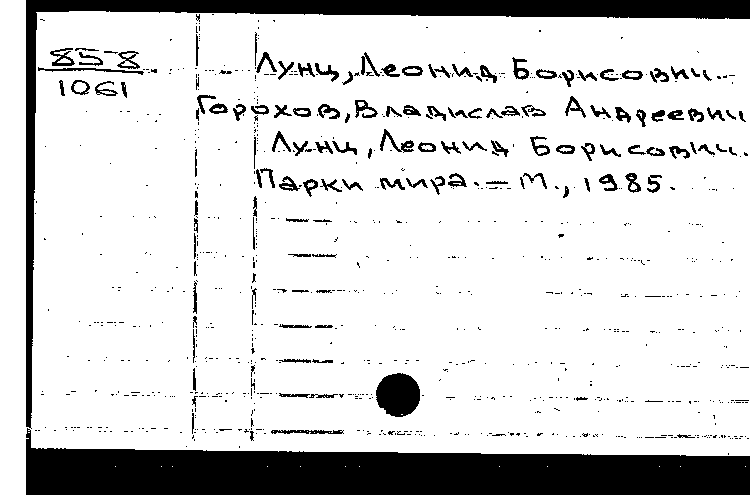 85-8
1061
Лунц, Леонид Борисович.
Горохов, Владислав Андреевич
Лунц, Леонид Борисович.
Парки мира. — М., 1985.